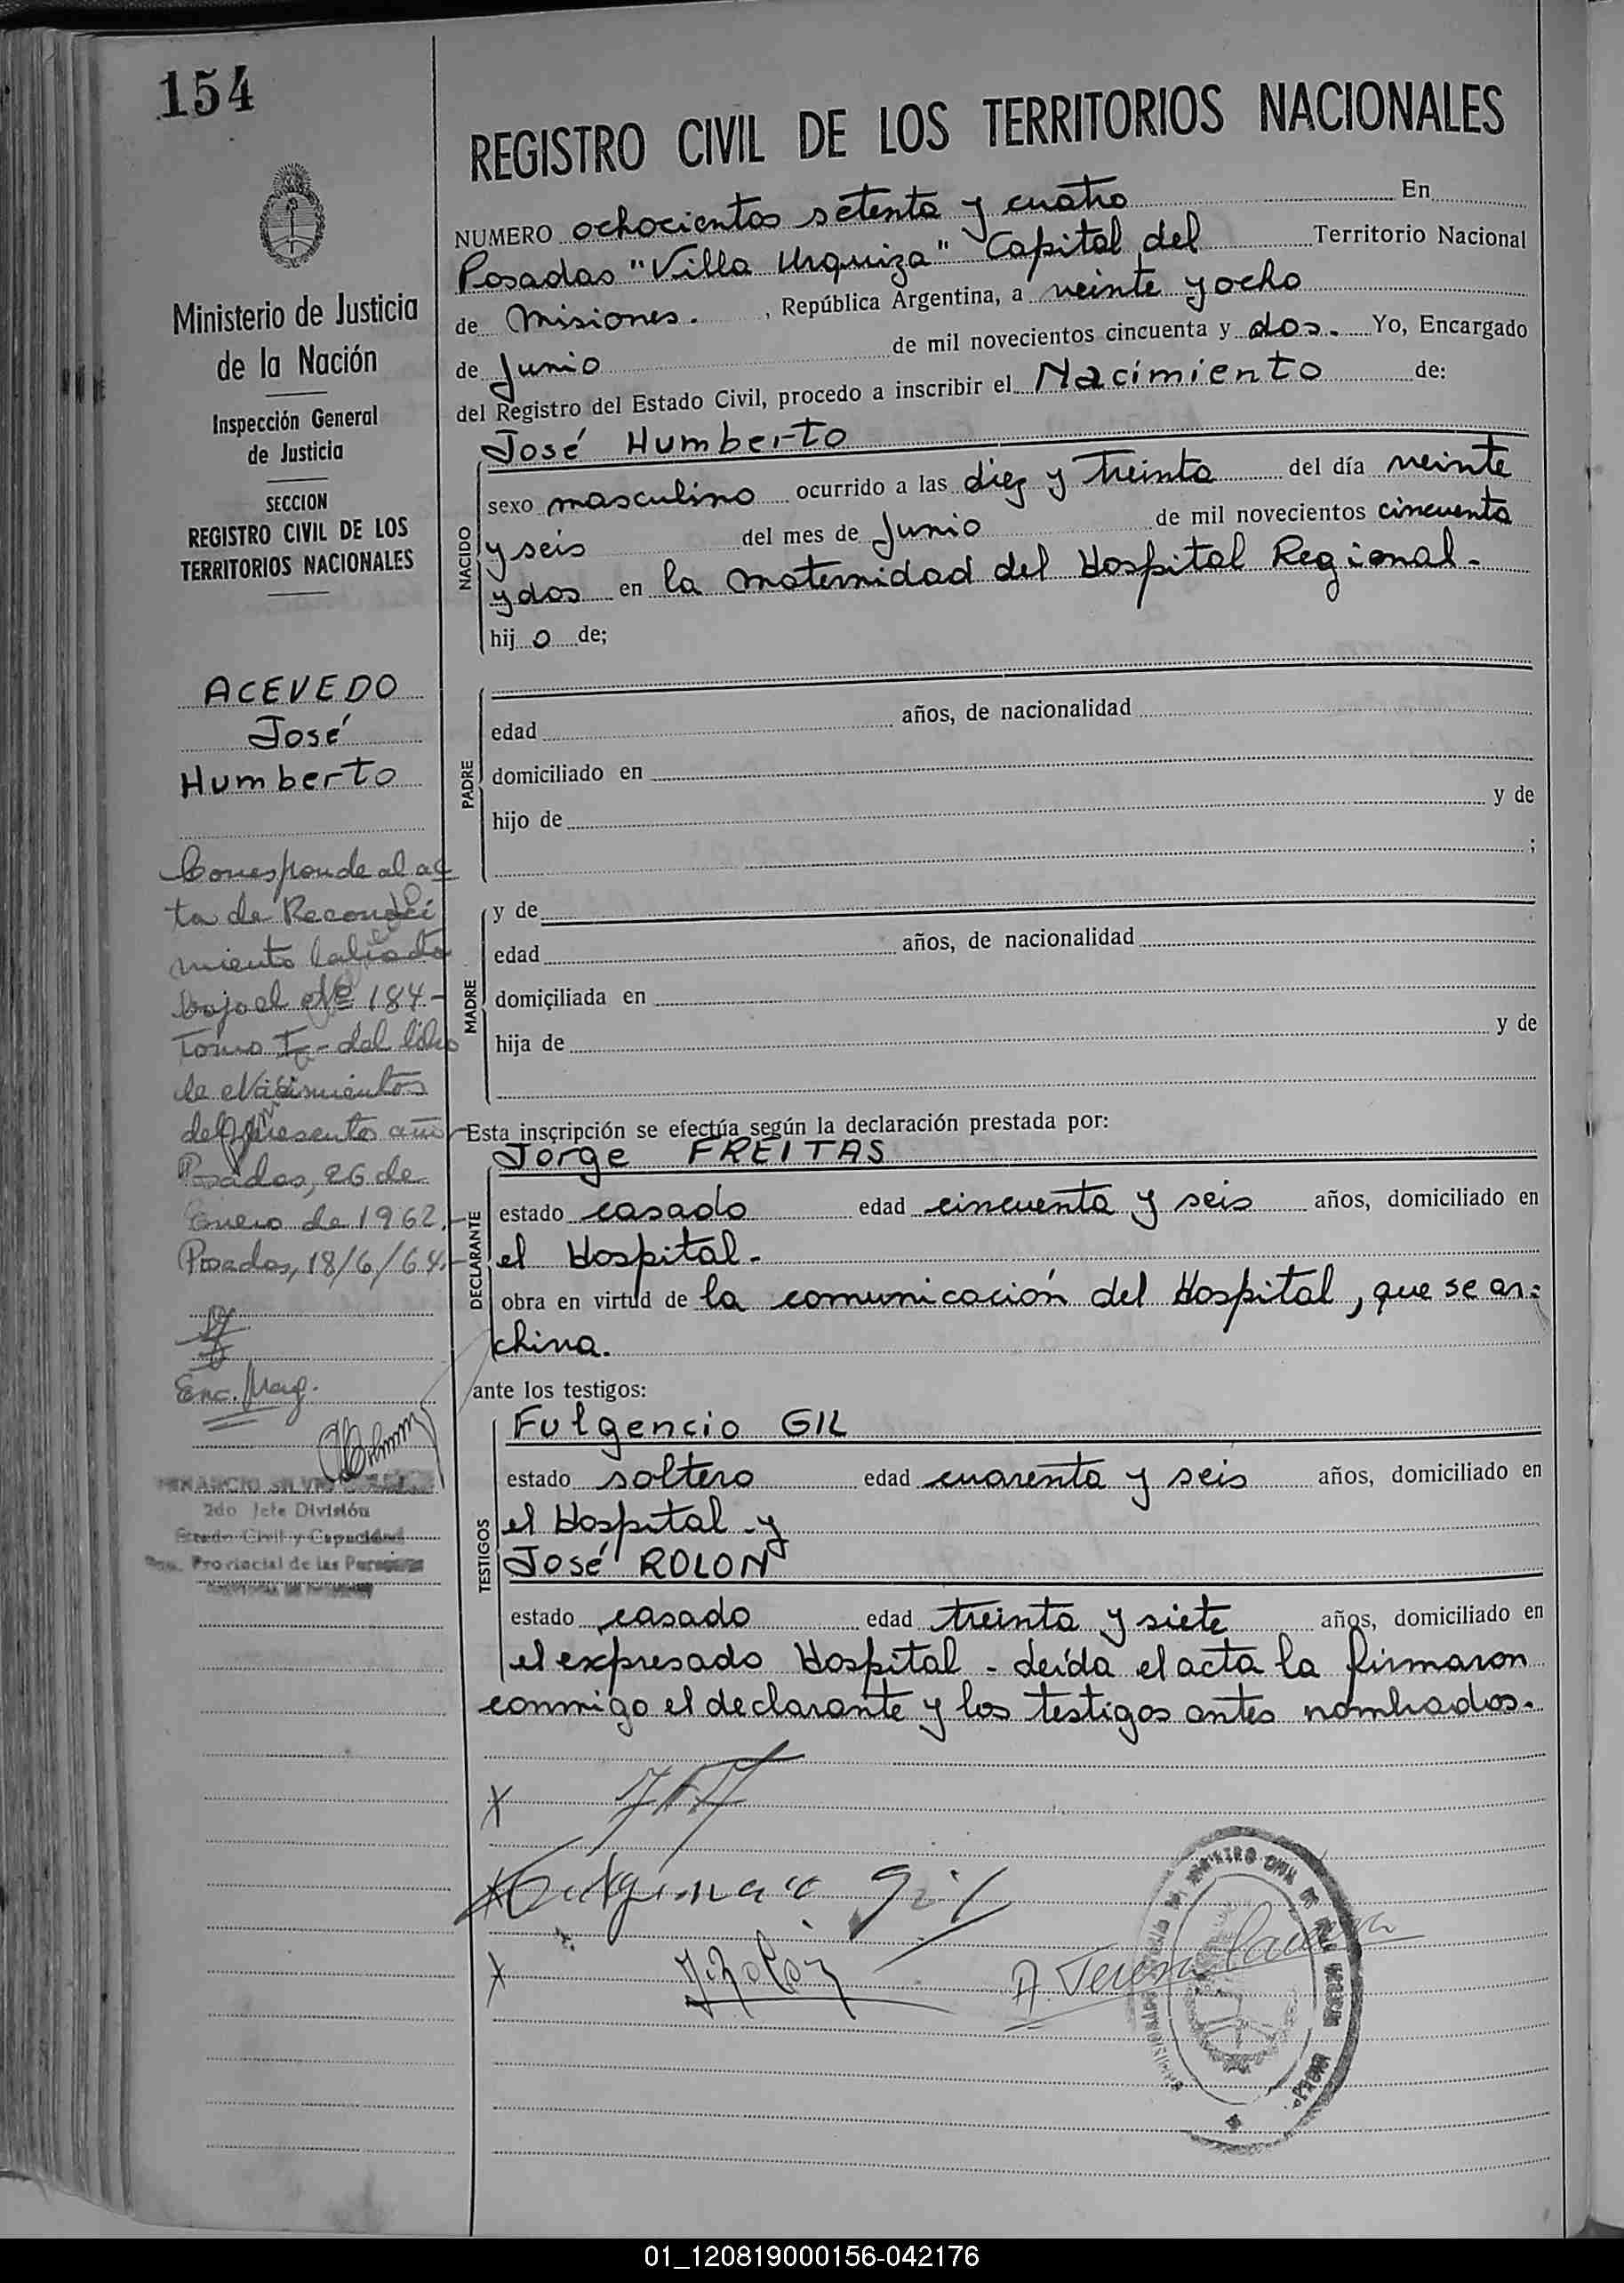 154
Ministerio de Justicia
de la Nación
Inspección General
de Justicia
SECCION
REGISTRO CIVIL DE LOS
TERRITORIOS NACIONALES
ACEVEDO
José
Humberto
Corresponde al ac
ta de Reconoci
miento labrada
bajo el Nº 184-
Tomo I - del libro
de Nacimientos
del presente año
Posadas, 26 de
Enero de 1962.
Posadas, 18/6/64.
Enc. Mag.
2do Jefe División
Estado Civil y Capacidad
Provincial de las Personas
REGISTRO CIVIL DE LOS TERRITORIOS NACIONALES
NUMERO ochocientos setenta y cuatro En
Posadas "Villa Urquiza" Capital del Territorio Nacional
de Misiones. , República Argentina, a veinte y ocho
de Junio de mil novecientos cincuenta y dos. Yo, Encargado
del Registro del Estado Civil, procedo a inscribir el Nacimiento de:
José Humberto
NACIDO
sexo masculino ocurrido a las diez y treinta del día veinte
y seis del mes de Junio de mil novecientos cincuenta
y dos en la maternidad del Hospital Regional.
hij o de;
PADRE
edad años, de nacionalidad
domiciliado en
hijo de y de
;
MADRE
y de
edad años, de nacionalidad
domiciliada en
hija de y de
Esta inscripción se efectúa según la declaración prestada por:
DECLARANTE
Jorge FREITAS
estado casado edad cincuenta y seis años, domiciliado en
el Hospital.
obra en virtud de la comunicación del Hospital, que se ar-
chiva.
ante los testigos:
TESTIGOS
Fulgencio GIL
estado soltero edad cuarenta y seis años, domiciliado en
el Hospital y
José ROLON
estado casado edad treinta y siete años, domiciliado en
el expresado Hospital - Leída el acta la firmaron
conmigo el declarante y los testigos antes nombrados.
X
X Fulgencio Gil
X J. Rolón
A. Teresa
01_120819000156-042176